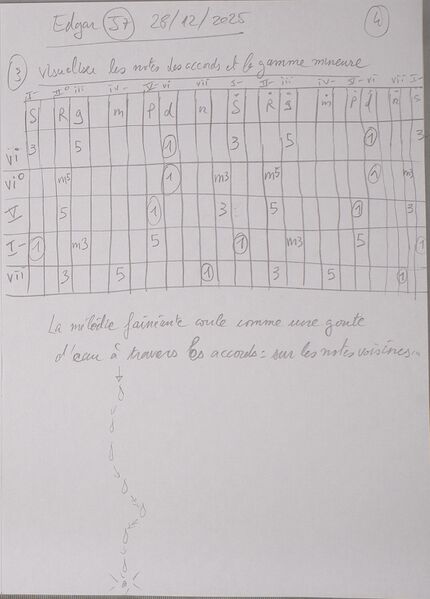 Edgar J7 28/12/2025 4
3 Visualiser les notes des accords et la gamme mineure
I- II° iii iv- V- vi vii I- II- iii iv- V- vi vii I-
S R g m P d n S R g m P d n S
vi 3 5 1 3 5 1 3
vi° m5 1 m3 m5 1 m3
V 5 1 3 5 1 3
I- 1 m3 5 1 m3 5 1
vii 3 5 1 3 5 1
La mélodie fainéante coule comme une goute
d'eau à travers les accords : sur les notes voisines...